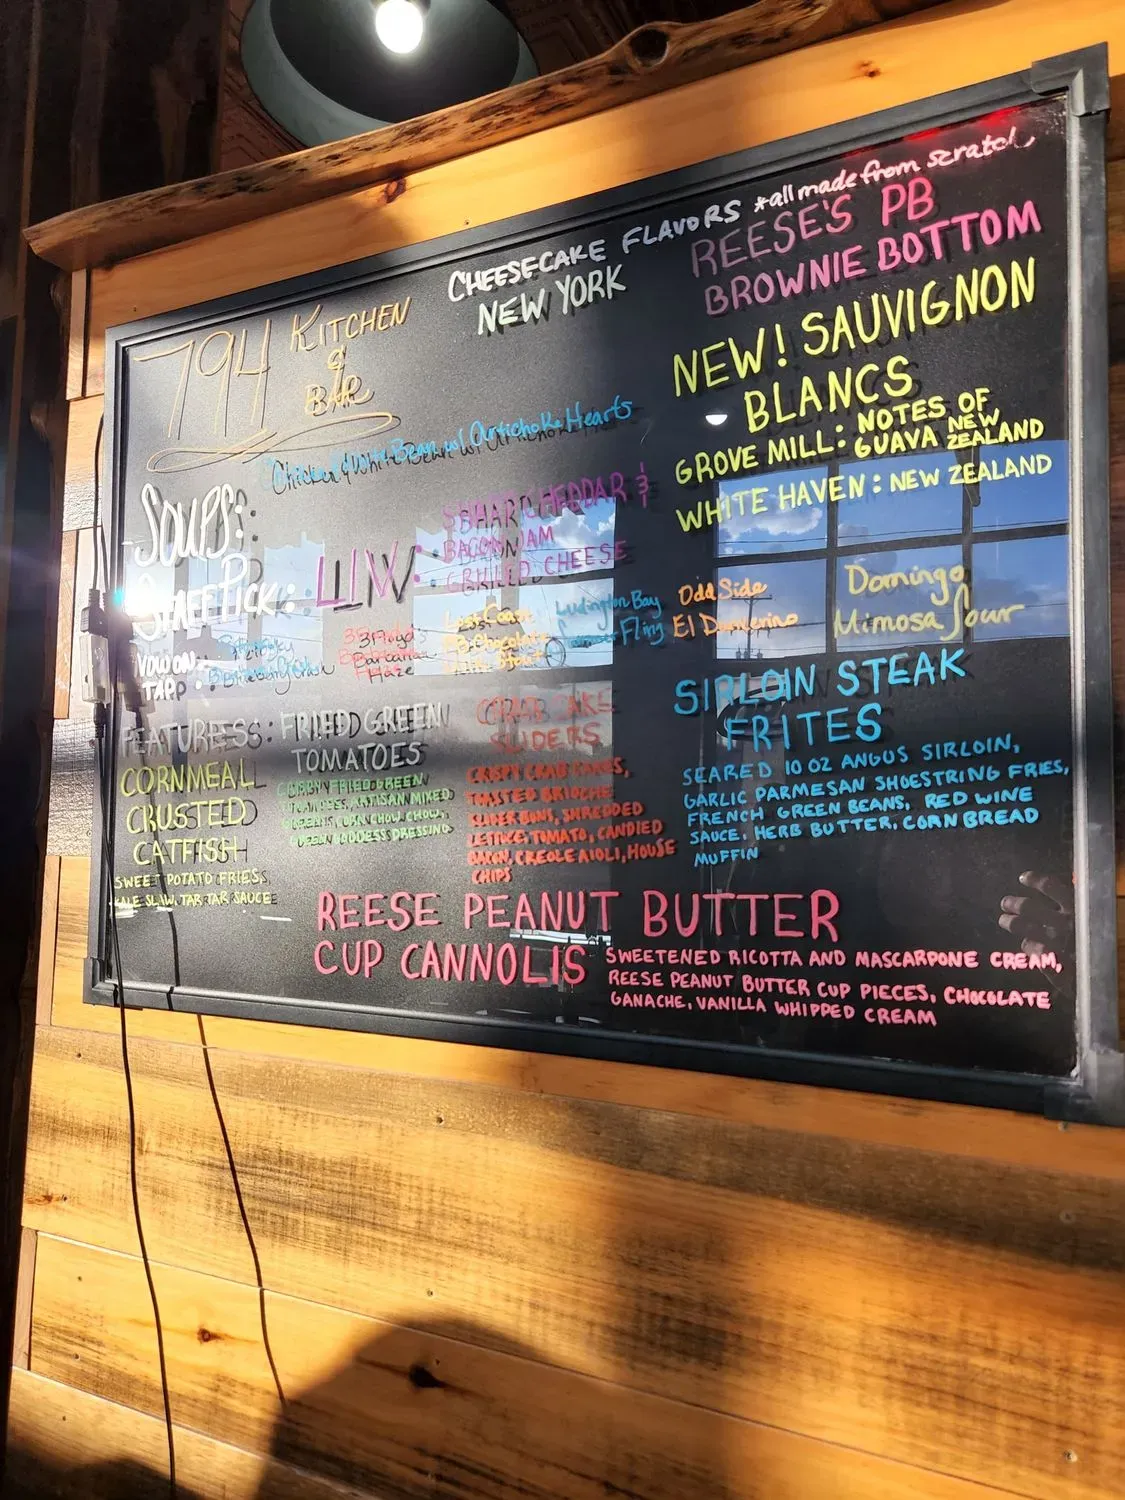 794 KITCHEN
&
BAR
CHEESECAKE FLAVORS *all made from scratch
NEW YORK
REESE'S PB
BROWNIE BOTTOM
NEW! SAUVIGNON
BLANCS
GROVE MILL: NOTES OF
GUAVA NEW
ZEALAND
WHITE HAVEN: NEW ZEALAND
SOUPS:
Chicken & White Bean w/ Artichoke Hearts
STAFF PICK:
SHARP CHEDDAR &
BACON JAM
GRILLED CHEESE
NOW ON
TAP:
Blueberry
3 Floyds
Barbarian
Haze
Chocolate
Ludington Bay
Summer Fling
Odd Side
Domingo
Mimosa Sour
FEATURES:
FRIED GREEN
TOMATOES
CORNMEAL
CRUSTED
CATFISH
SWEET POTATO FRIES,
KALE SLAW, TAR TAR SAUCE
CRISPY FRIED GREEN
TOMATOES, ARTISAN MIXED
GREENS, CORN CHOW CHOW,
GREEN GODDESS DRESSING
CRAB CAKE
SLIDERS
CRISPY CRAB CAKES,
TOASTED BRIOCHE
SLIDER BUNS, SHREDDED
LETTUCE, TOMATO, CANDIED
BACON, CREOLE AIOLI, HOUSE
CHIPS
SIRLOIN STEAK
FRITES
SEARED 10 OZ ANGUS SIRLOIN,
GARLIC PARMESAN SHOESTRING FRIES,
FRENCH GREEN BEANS, RED WINE
SAUCE, HERB BUTTER, CORN BREAD
MUFFIN
REESE PEANUT BUTTER
CUP CANNOLIS
SWEETENED RICOTTA AND MASCARPONE CREAM,
REESE PEANUT BUTTER CUP PIECES, CHOCOLATE
GANACHE, VANILLA WHIPPED CREAM